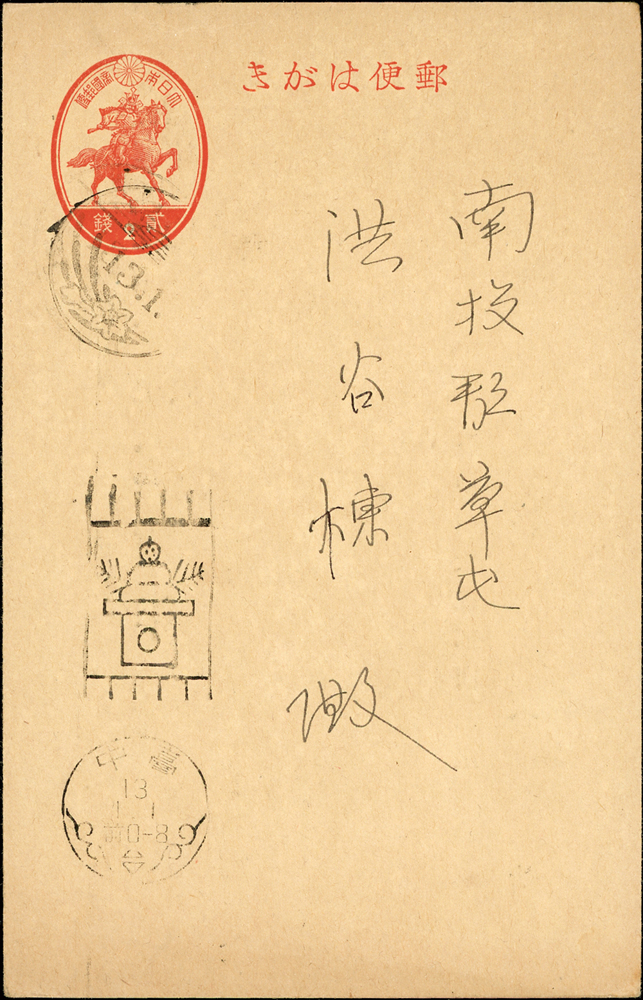 郵便はがき
大日本帝國郵便
貳錢
2
13.1.
南投郡草屯
洪谷棟
殿
臺中
13
1.1
前0-8
台